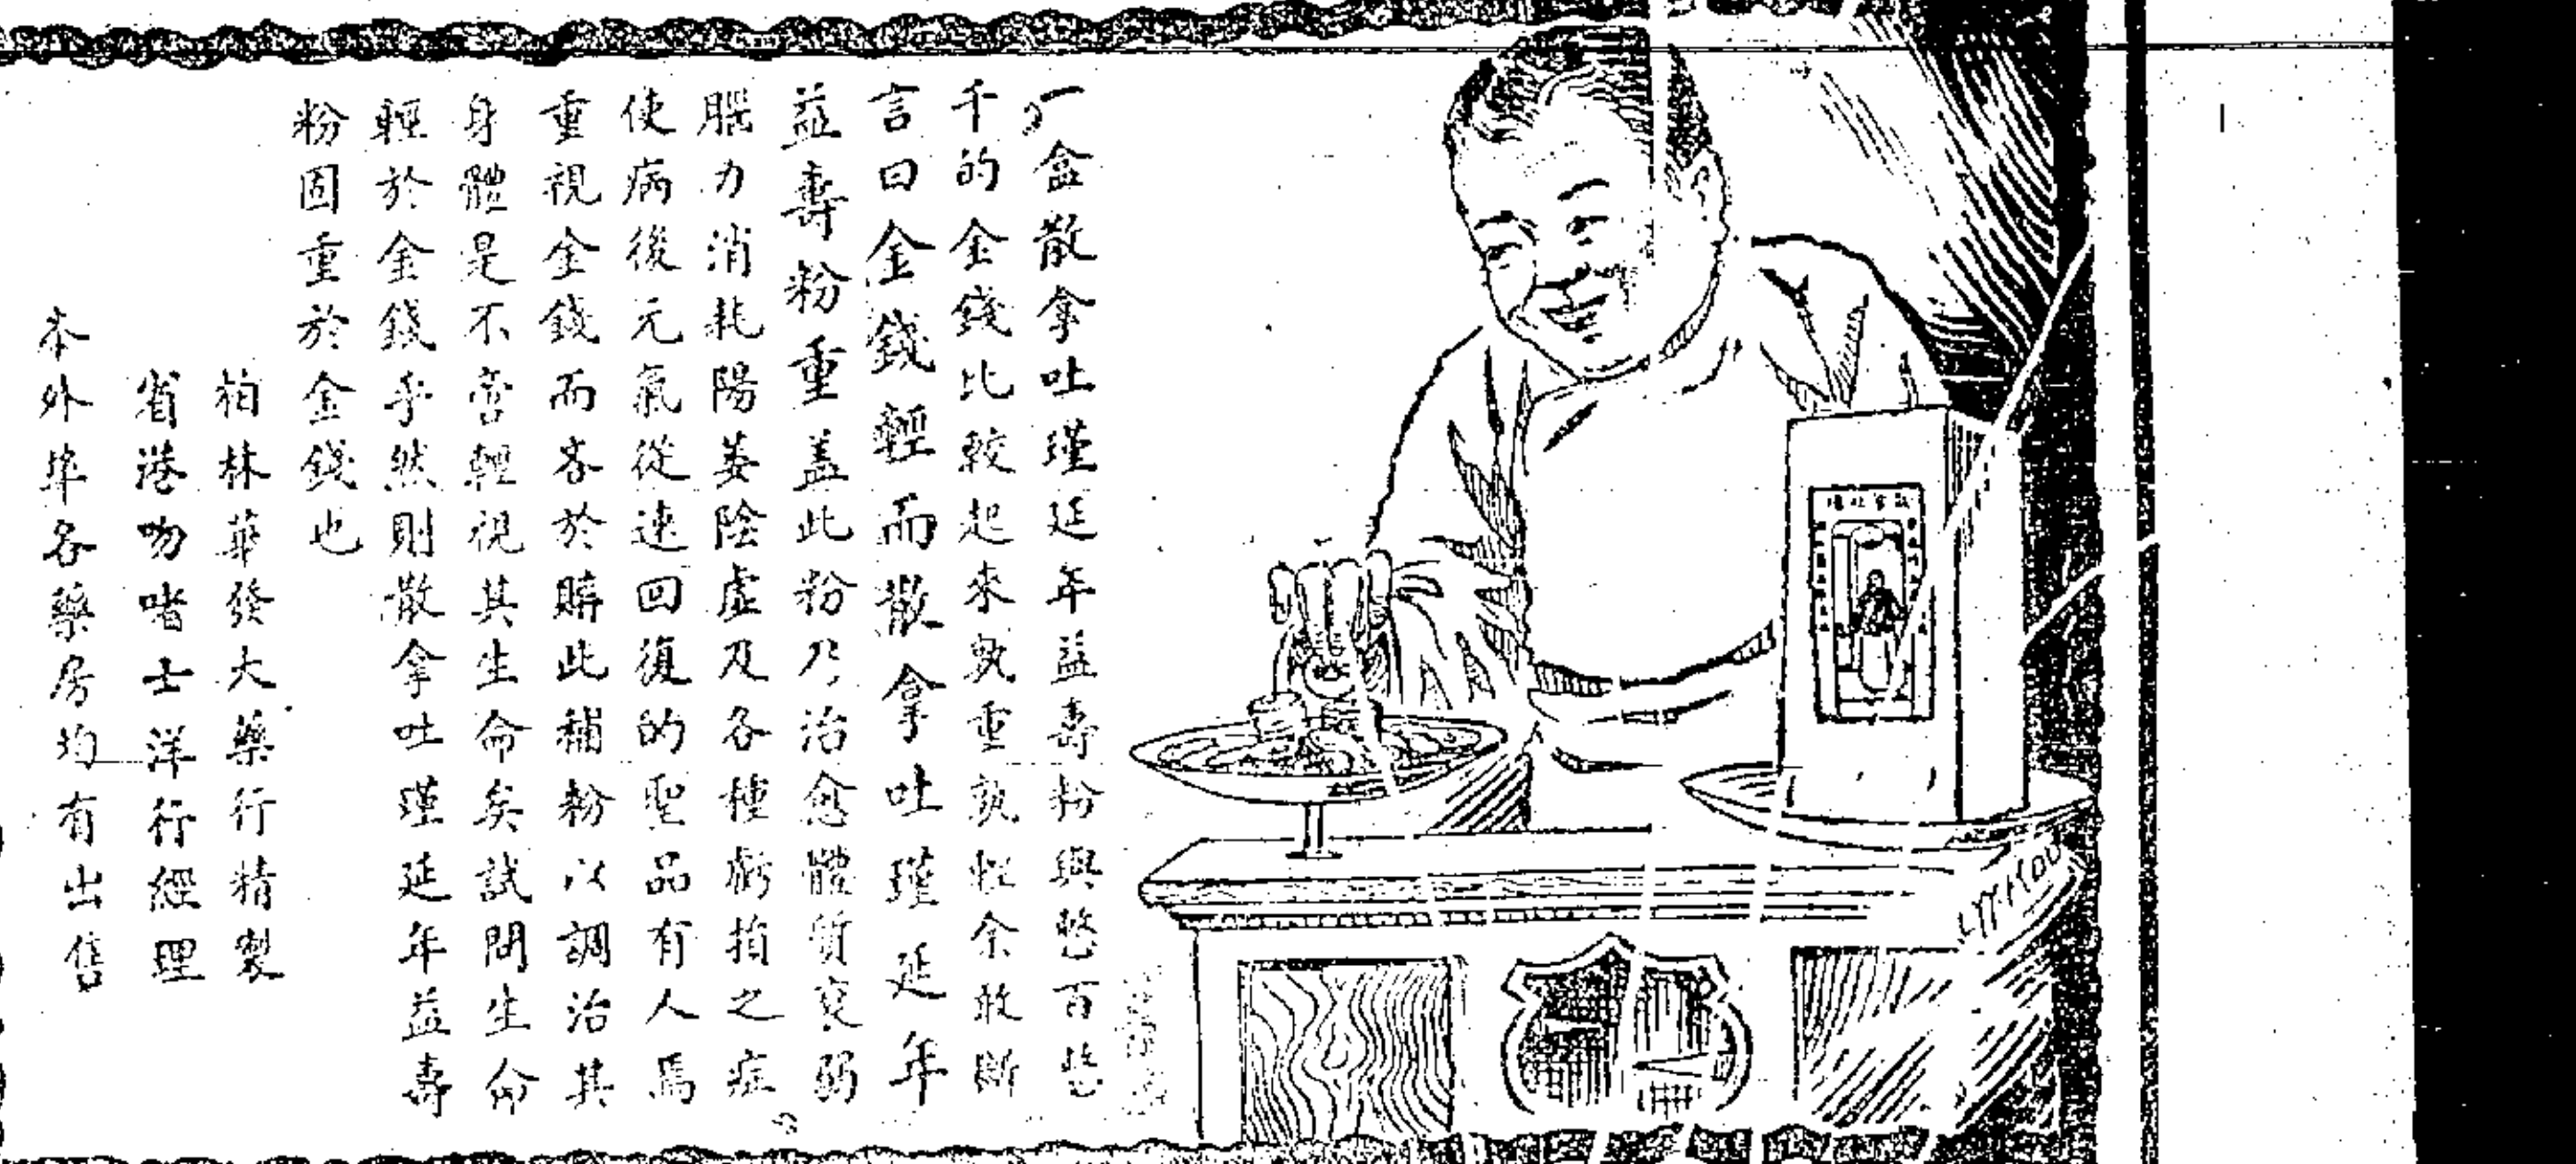 一盒散拿吐瑾延年益壽粉與整百整
千的金錢比較起來孰重孰輕余敢斷
言曰金錢輕而散拿吐瑾延年
益壽粉重蓋此粉乃治愈體質衰弱
腦力消耗陽萎陰虛及各種虧損之症
使病後元氣從速回復的聖品有人焉
重視金錢而吝於購此補粉以調治其
身體是不啻輕視其生命矣試問生命
輕於金錢乎然則散拿吐瑾延年益壽
粉固重於金錢也
柏林華發大藥行精製
省港吻啫士洋行經理
本外埠各藥房均有出售